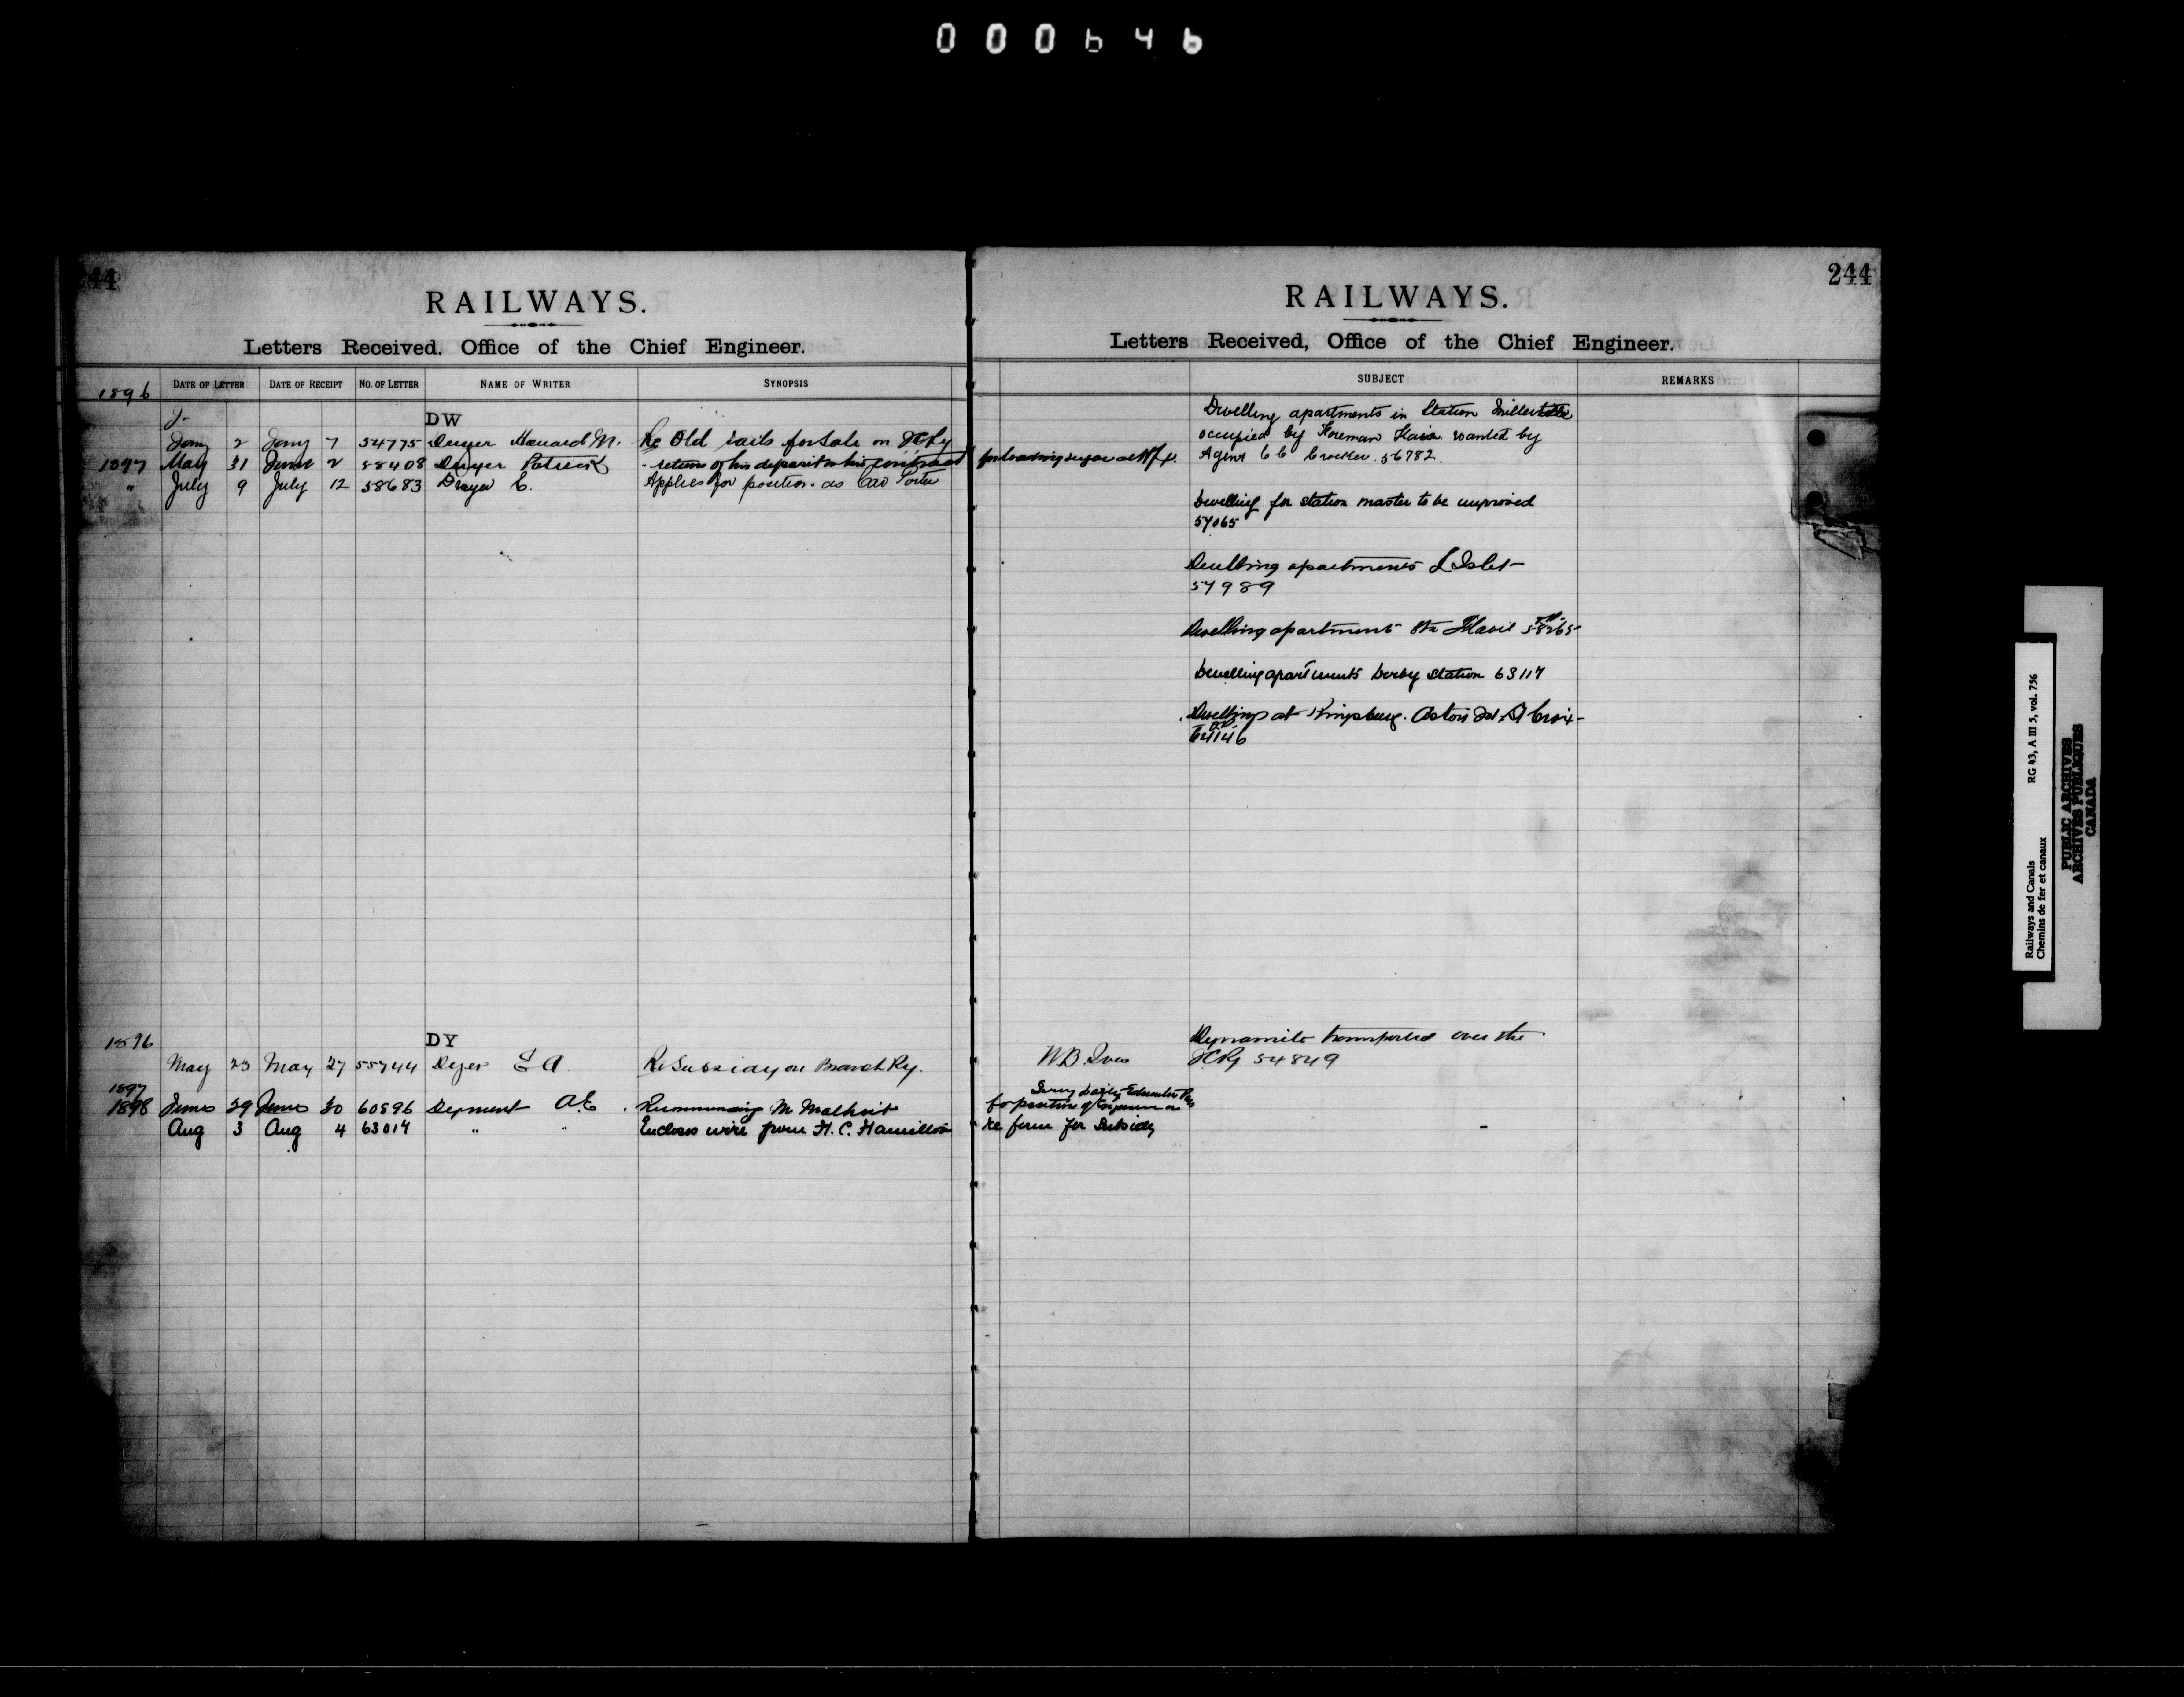 000646
44
RAILWAYS.
Letters Received, Office of the Chief Engineer.
1896 DATE OF LETTER DATE OF RECEIPT NO. OF LETTER NAME OF WRITER SYNOPSIS
DW
Jany 2 Jany 7 54775 Dwyer Howard M. Re Old rails for sale on ICRy
1897 May 31 June 2 58408 Dwyer Patrick - return of his deposit on his contract for loading sugar at Hfx.
" July 9 July 12 58683 Dwyer E. Applies for position as Car Porter
1896
DY
May 23 May 27 55744 Dyer A Re Subsidy on Branch Ry. W B Ives
1897
1898 29 30 60896 Dyment A.E. Recommending M
for position of
Aug 3 Aug 4 63014 " " Encloses wire from H. C. Hamilton re form for Subsidy
244
RAILWAYS.
Letters Received, Office of the Chief Engineer.
SUBJECT REMARKS
Dwelling apartments in Station
occupied by Foreman wanted by
Agent C C Crocker. 56782.
Dwelling for station master to be improved
57065
Dwelling apartments L'Islet
57989
Dwelling apartment Ste Flavie 58265
Dwelling apartments Derby Station 63117
Dwellings at Kingsburg. Aston Jct. St Croix
64146
Dynamite transported over the
ICRy 54849
Railways and Canals RG 43, A III 5, vol. 756
Chemins de fer et canaux
PUBLIC ARCHIVES
ARCHIVES PUBLIQUES
CANADA